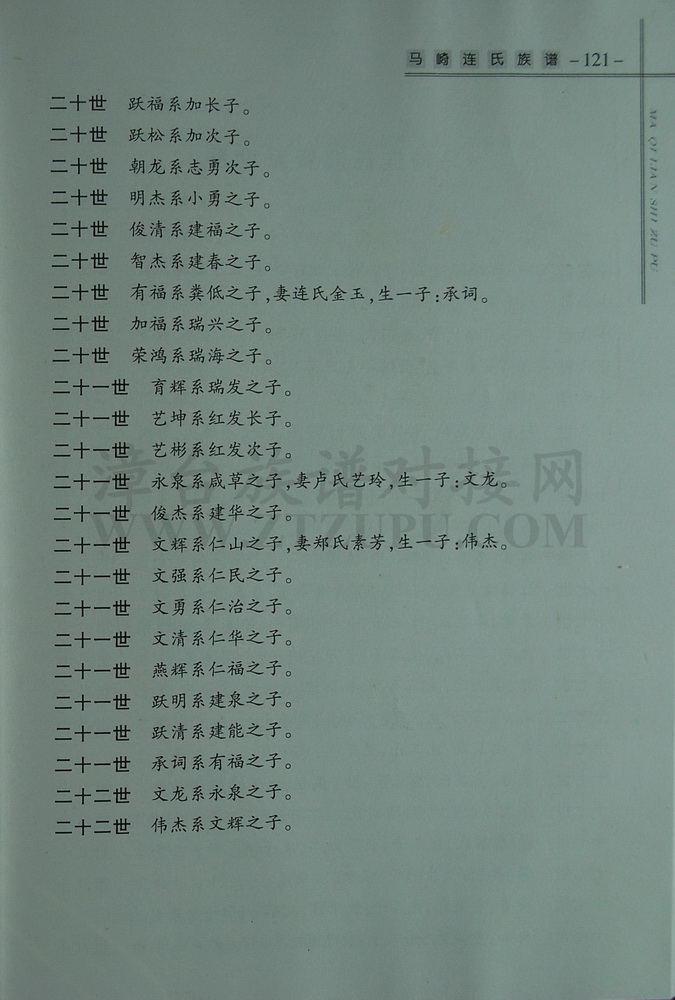 马崎连氏族谱 -121-
MA QI LIAN SHI ZU PU
二十世 跃福系加长子。
二十世 跃松系加次子。
二十世 朝龙系志勇次子。
二十世 明杰系小勇之子。
二十世 俊清系建福之子。
二十世 智杰系建春之子。
二十世 有福系粪低之子,妻连氏金玉,生一子:承词。
二十世 加福系瑞兴之子。
二十世 荣鸿系瑞海之子。
二十一世 育辉系瑞发之子。
二十一世 艺坤系红发长子。
二十一世 艺彬系红发次子。
二十一世 永泉系咸草之子,妻卢氏艺玲,生一子:文龙。
二十一世 俊杰系建华之子。
二十一世 文辉系仁山之子,妻郑氏素芳,生一子:伟杰。
二十一世 文强系仁民之子。
二十一世 文勇系仁治之子。
二十一世 文清系仁华之子。
二十一世 燕辉系仁福之子。
二十一世 跃明系建泉之子。
二十一世 跃清系建能之子。
二十一世 承词系有福之子。
二十二世 文龙系永泉之子。
二十二世 伟杰系文辉之子。
漳台族谱对接网
WWW.ZTZUPU.COM